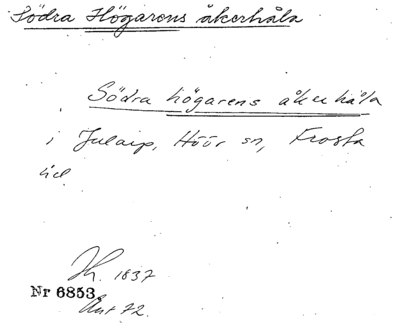 Södra Högarens åkerhåla
Södra högarens åkerhåla
i Jularp, Höör sn, Frosta
hd
Nr 6853. 1837
Ant 72.